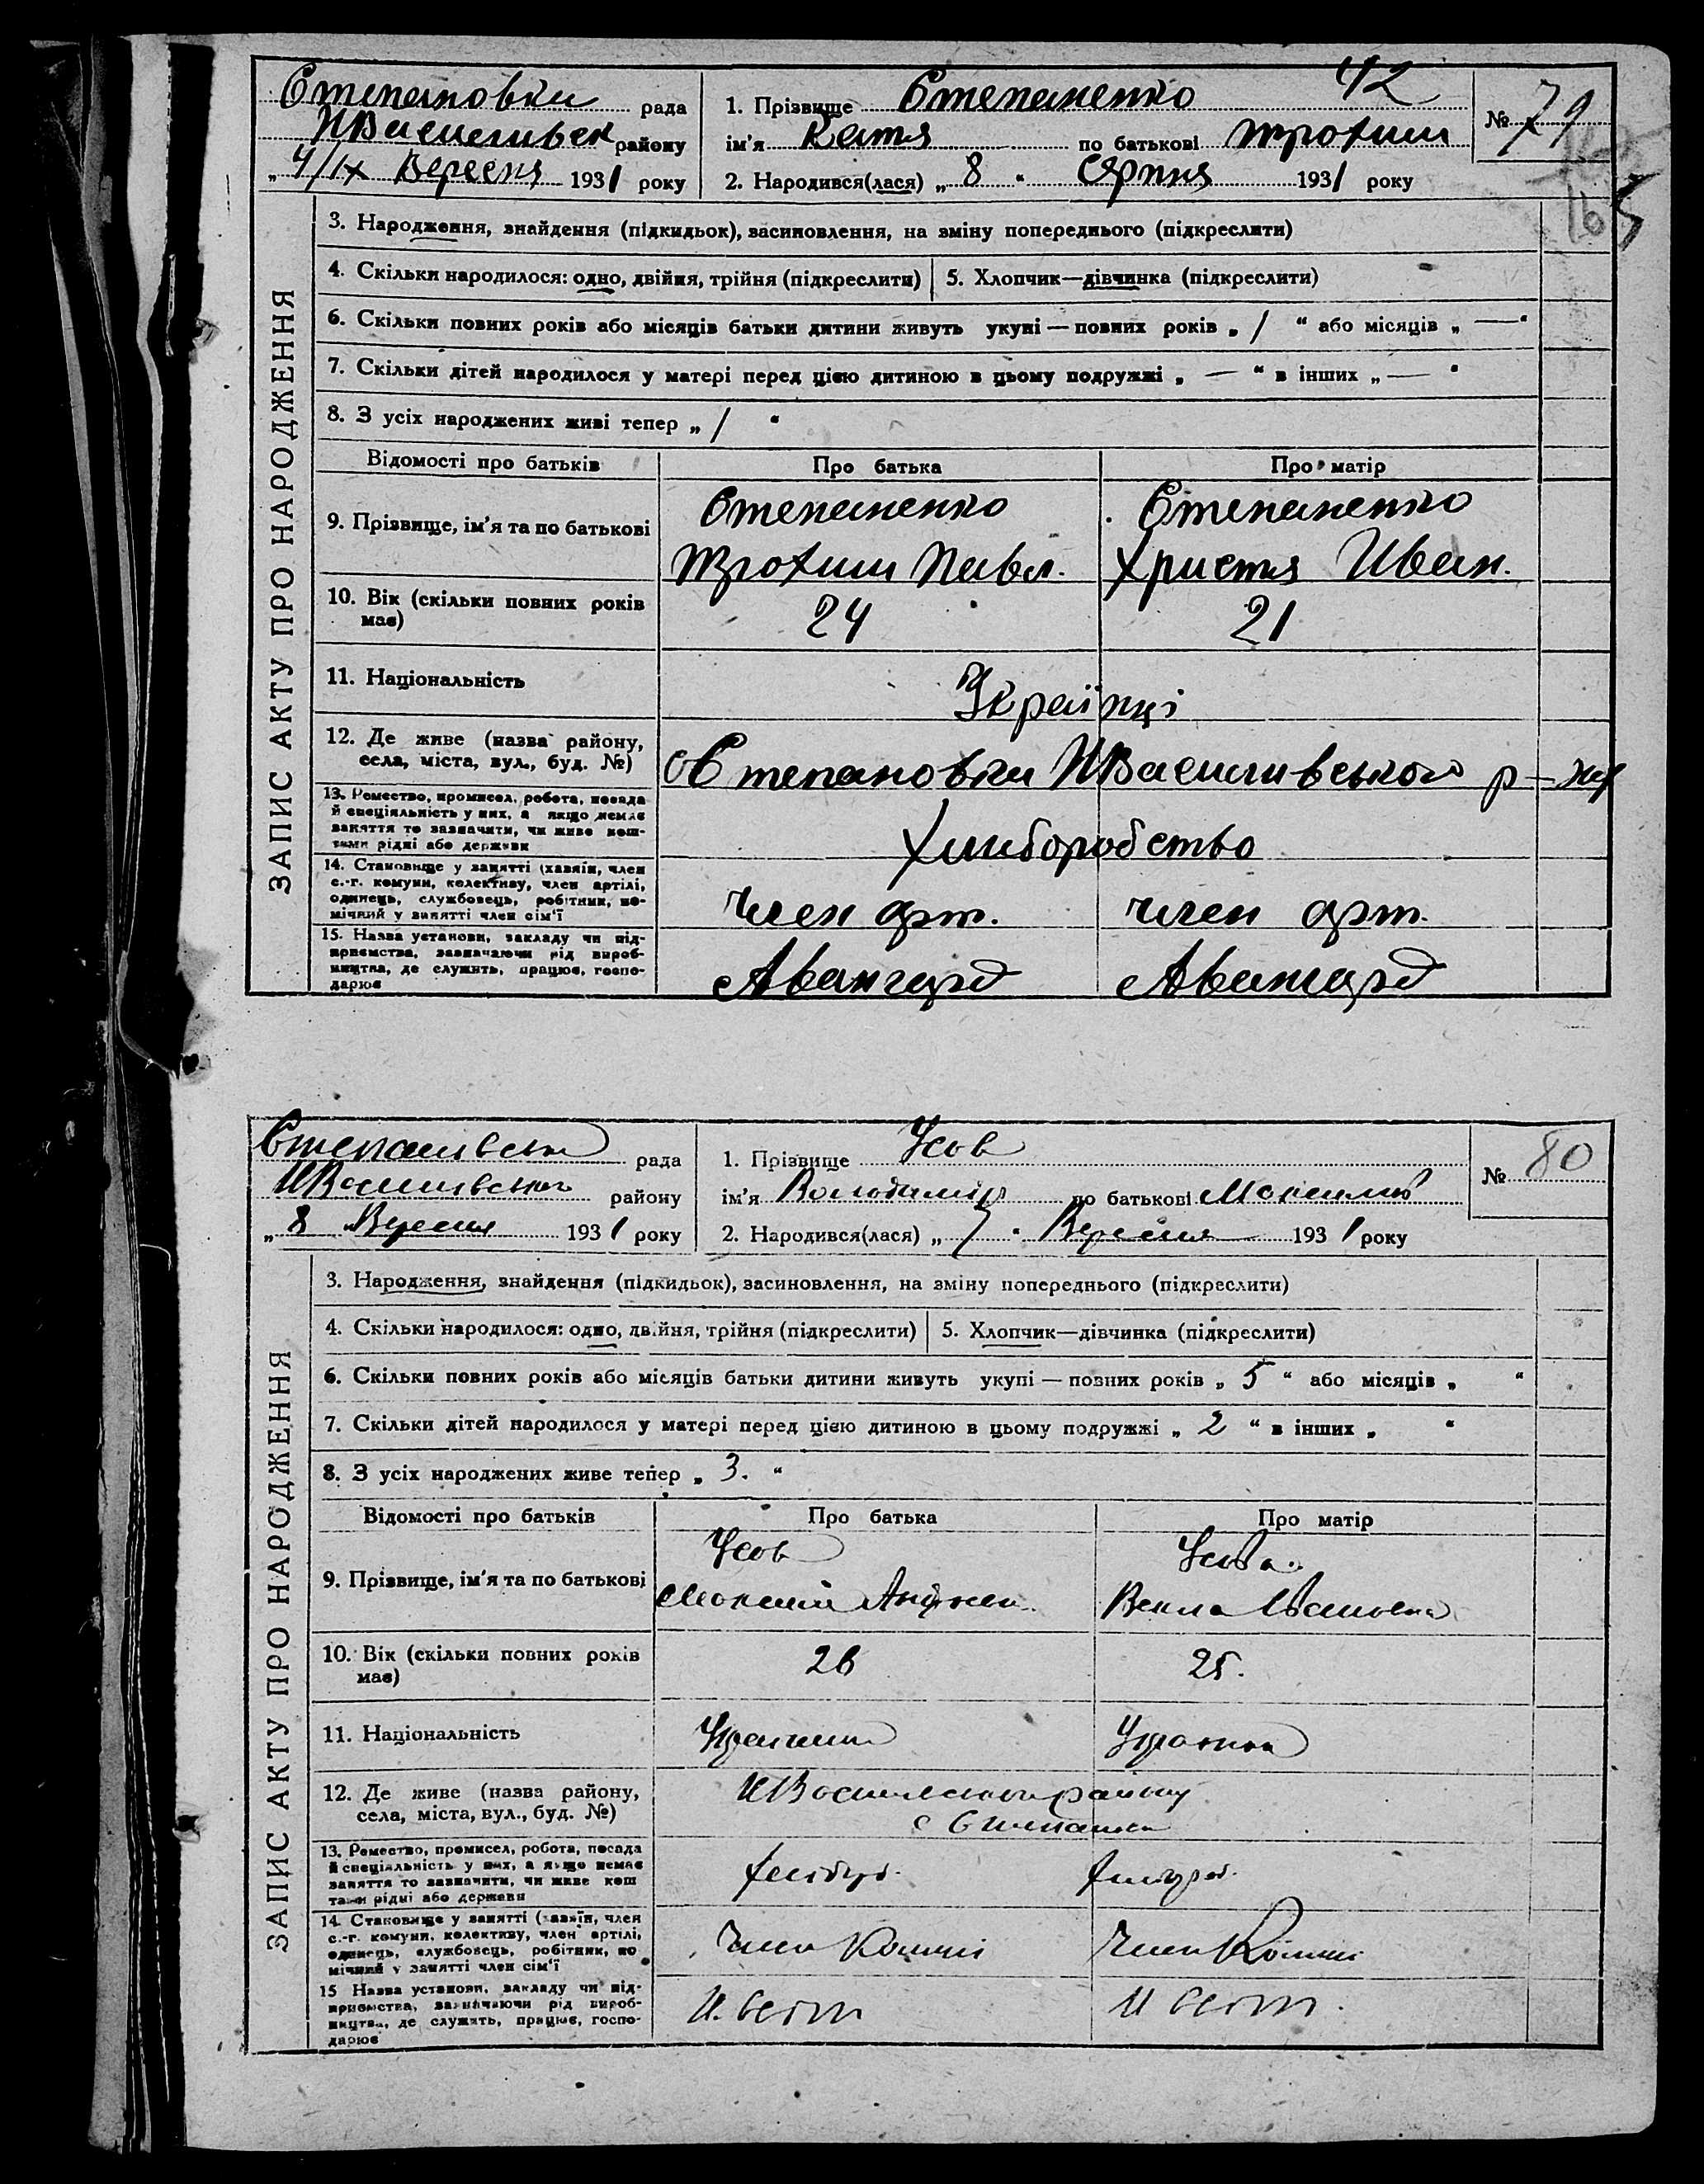 42
Степановки рада
НВасильвск району
„ 4/IX Вересня 1931 року
1. Прізвище Степаненко
ім'я Катя по батькові Трохим
2. Народився(лася) „ 8 “ Серпня 1931 року
№ 79
ЗАПИС АКТУ ПРО НАРОДЖЕННЯ
3. Народження, знайдення (підкидьок), засиновлення, на зміну попереднього (підкреслити)
4. Скільки народилося: одно, двійня, трійня (підкреслити) 5. Хлопчик—дівчинка (підкреслити)
6. Скільки повних років або місяців батьки дитини живуть укупі — повних років „ 1 “ або місяців „ — “
7. Скільки дітей народилося у матері перед цією дитиною в цьому подружжі „ — “ в інших „ — “
8. З усіх народжених живі тепер „ 1 “
Відомості про батьків Про батька Про матір
9. Прізвище, ім'я та по батькові
Степаненко
Трохим Павл.
Степаненко
Христя Иван.
10. Вік (скільки повних років
має)
24 21
11. Національність
Українці
12. Де живе (назва району,
села, міста, вул., буд. №)
с Степановки НВасильвського р-ну
13. Ремество, промисел, робота, посада
й спеціяльність у них, а якщо немає
заняття то зазначити, чи живе кош-
тами рідні або держави
Хлиборобство
14. Становище у занятті (хазяїн, член
с.-г. комуни, колективу, член артілі,
одинець, службовець, робітник, по-
мічний у занятті член сім'ї
член арт. член арт.
15. Назва установи, закладу чи під-
приємства, зазначаючи рід вироб-
ництва, де служить, працює, госпо-
дарює
Авангард Авангард
Степанівська рада
НВасилівського району
„ 8 Вересня 1931 року
1. Прізвище Усов
ім'я Володимір по батькові Максимов
2. Народився(лася) „ 7 “ Вересня 1931 року
№ 80
ЗАПИС АКТУ ПРО НАРОДЖЕННЯ
3. Народження, знайдення (підкидьок), засиновлення, на зміну попереднього (підкреслити)
4. Скільки народилося: одно, двійня, трійня (підкреслити) 5. Хлопчик—дівчинка (підкреслити)
6. Скільки повних років або місяців батьки дитини живуть укупі — повних років „ 5 “ або місяців „ “
7. Скільки дітей народилося у матері перед цією дитиною в цьому подружжі „ 2 “ в інших „ “
8. З усіх народжених живе тепер „ 3. “
Відомості про батьків Про батька Про матір
9. Прізвище, ім'я та по батькові
Усов
Максим
Усова.
Векла Ивановна
10. Вік (скільки повних років
має)
26 25.
11. Національність
Українец Українка
12. Де живе (назва району,
села, міста, вул., буд. №)
НВасилевського району
с Степановка
13. Ремество, промисел, робота, посада
й спеціяльність у них, а якщо немає
заняття то зазначити, чи живе кош
тами рідні або держави
Хлибороб. Хлибороб.
14. Становище у занятті (хазяїн, член
с.-г. комуни, колективу, член артілі,
одинець, службовець, робітник, по
мічний у занятті член сім'ї
Член Комуні Член Комуні
15 Назва установи, закладу чи під-
приємства, зазначаючи рід вироб-
ництва, де служить, працює, госпо-
дарює